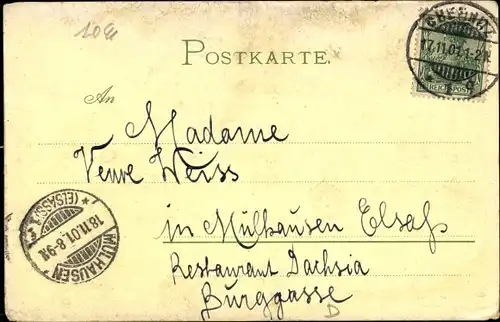 10 M
POSTKARTE.
CHEMNITZ
17.11.01.1-2N.
REICHSPOST
An
Madame
Veuve Weiss
in Mülhausen Elsaß
Restaurant Dachsia
Burggasse
D
MÜLHAUSEN
18.11.01.8-9N.
* (ELSASS) 1 *